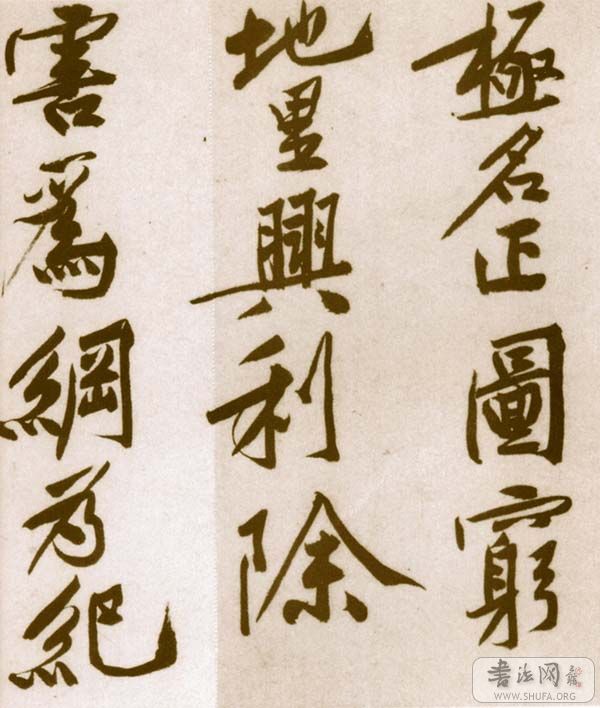 極名正圖窮
地里興利除
害為綱為紀
書法网
WWW.SHUFA.ORG